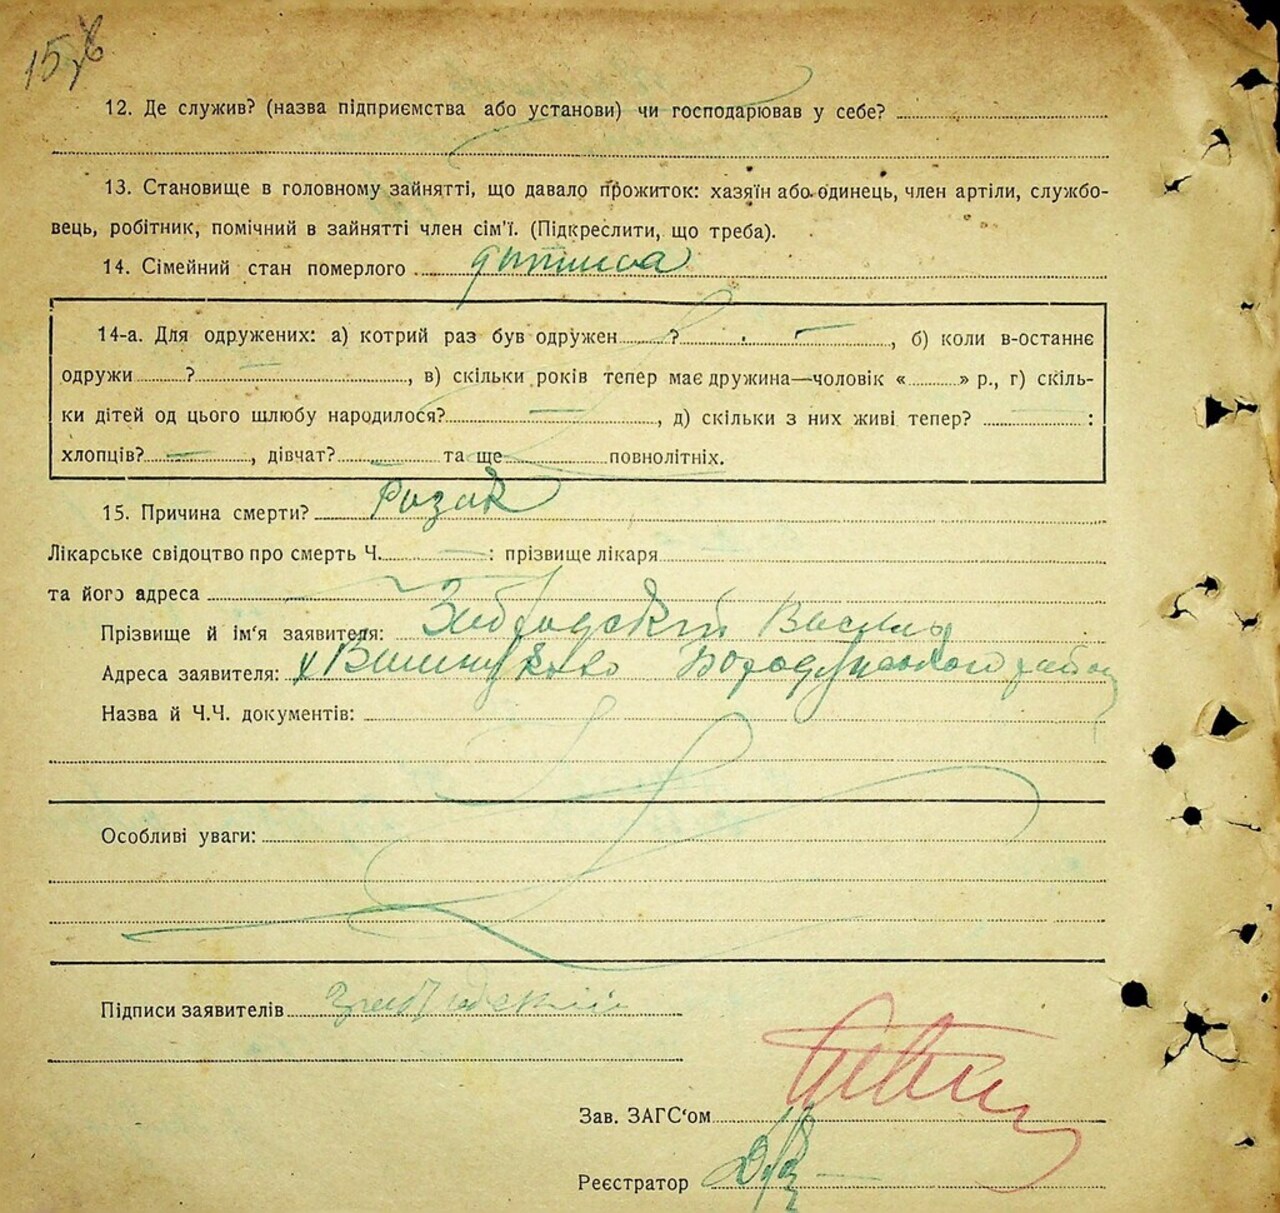 12. Де служив? (назва підприємства або установи) чи господарював у себе?
13. Становище в головному зайнятті, що давало прожиток: хазяїн або одинець, член артіли, службо-
вець, робітник, помічний в зайнятті член сім'ї. (Підкреслити, що треба).
14. Сімейний стан померлого дитина
14-а. Для одружених: а) котрий раз був одружен ? , б) коли в-останнє
одружи ? , в) скільки років тепер має дружина—чоловік « » р., г) скіль-
ки дітей од цього шлюбу народилося? , д) скільки з них живі тепер? :
хлопців? , дівчат? та ще повнолітніх.
15. Причина смерти?
Лікарське свідоцтво про смерть Ч. : прізвище лікаря
та його адреса
Прізвище й ім'я заявителя: Василь
Адреса заявителя: Бородянського району
Назва й Ч.Ч. документів:
Особливі уваги:
Підписи заявителів
Зав. ЗАГС'ом
Реєстратор